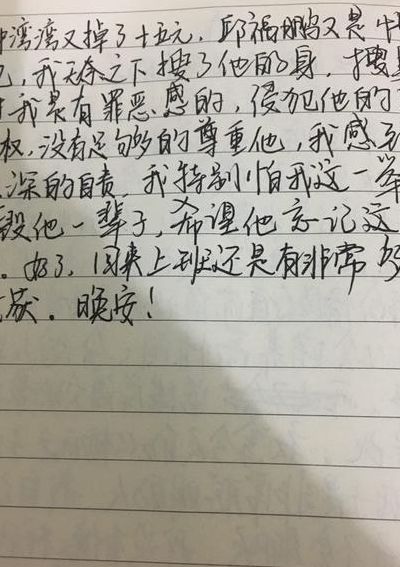 湾湾又掉了十五元，邱福鹏又是中
，我无奈之下搜了他的身，搜身
我是有罪恶感的，侵犯他的
权，没有足够的尊重他，我感到
深的自责，我特别怕我这一举
毁他一辈子，希望他忘记这
。好了，回来上班还是有非常多
获。晚安！